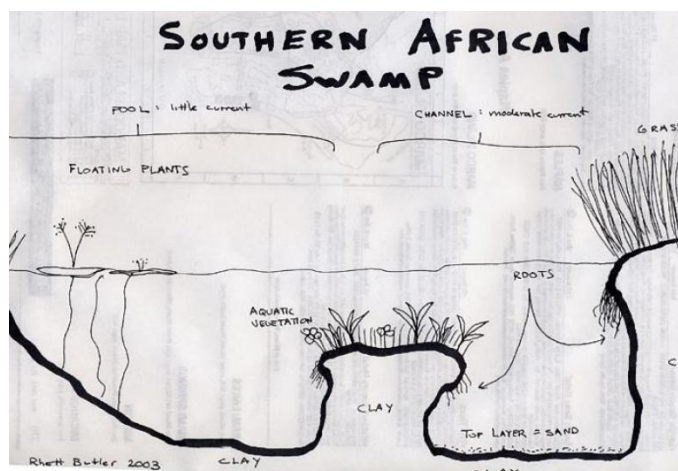 SOUTHERN AFRICAN
SWAMP
POOL: little current
CHANNEL: moderate current
GRASS
FLOATING PLANTS
ROOTS
AQUATIC
VEGETATION
CLAY
TOP LAYER = SAND
Rhett Butler 2003
CLAY